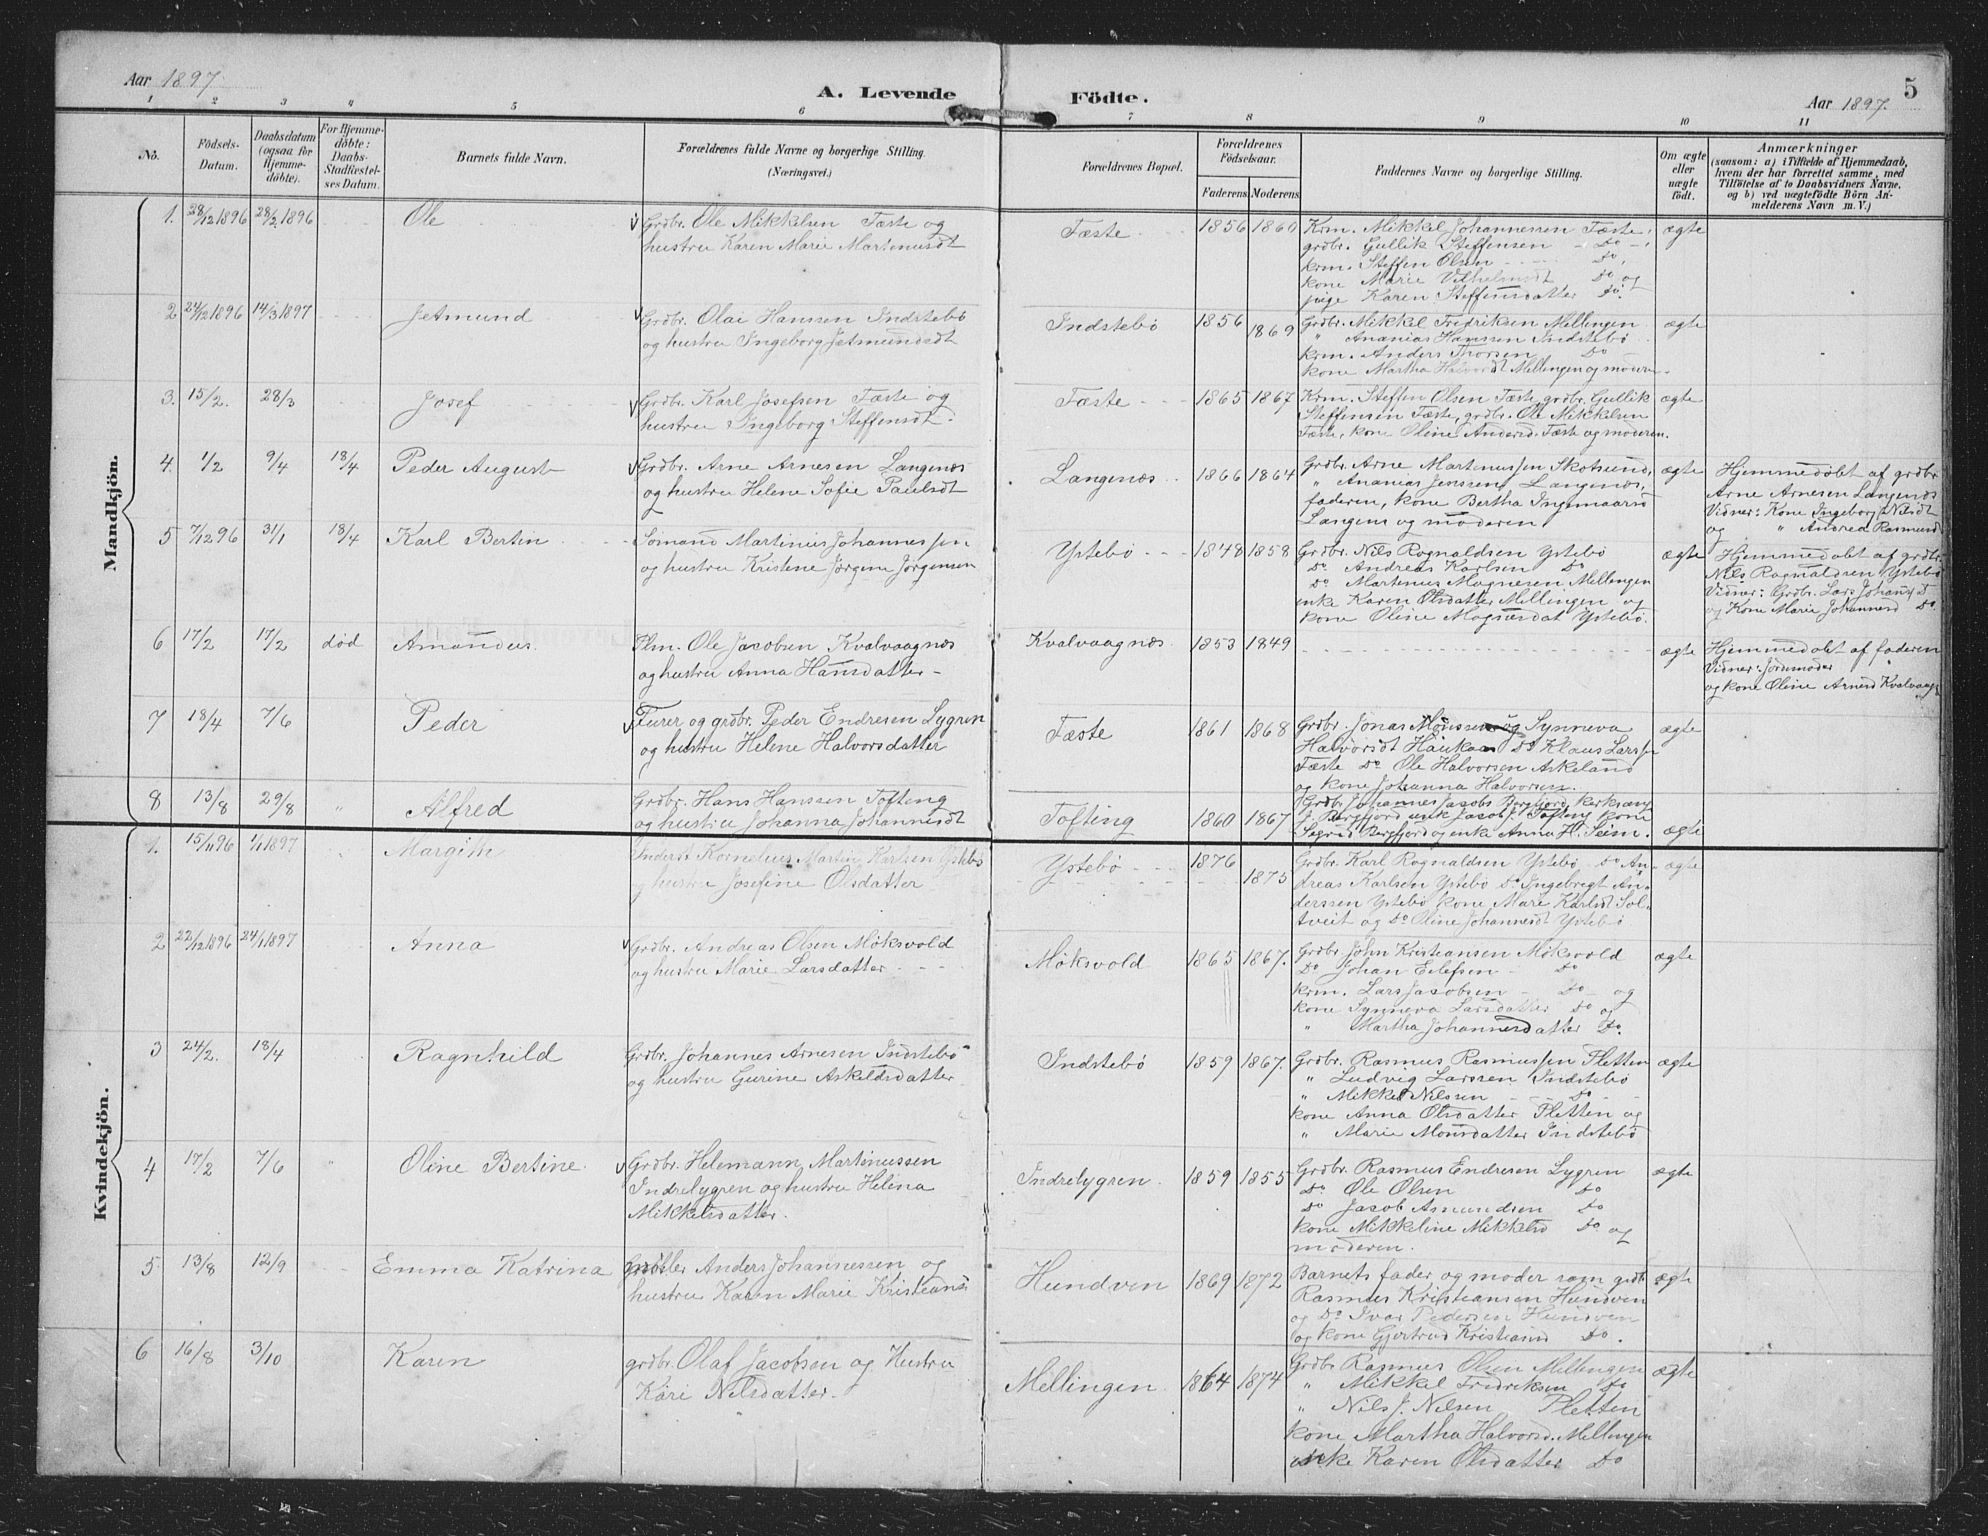 Aar 1897.
A. Levende Födte.
5
Aar 1897.
1 2 3 4 5 6 7 8 9 10 11
No.
Födsels-
Datum.
Daabsdatum
(ogsaa for
Hjemme-
döbte).
For Hjemme-
döbte:
Daabs-
Stadfæstel-
ses Datum.
Barnets fulde Navn.
Forældrenes fulde Navne og borgerlige Stilling.
(Næringsvei.)
Forældrenes Bopæl.
Forældrenes
Födselsaar.
Faderens. Moderens.
Faddernes Navne og borgerlige Stilling.
Om ægte
eller
uægte
födt.
Anmærkninger
(saasom: a) i Tilfælde af Hjemmedaab,
hvem der har forrettet samme, med
Tilföielse af to Daabsvidners Navne,
og b) ved uægtefödte Börn An-
melderens Navn m. V.)
Mandkjön.
1. 28/12 1896 28/2 1896 Ole
Grdbr. Ole Mikkelsen Tæste og
hustru Karen Marie Martenusdt
Tæste 1856 1860
Krm. Mikkel Johannessen Tæste,
grdbr. Gullik Steffensen Do
krm. Steffen Olsen Do
kone Marie Vilhelmsdt Do og
pige Karen Steffensdatter Do.
ægte
2 24/12 1896 14/3 1897 Jetmund
Grdbr. Olai Hanssen Indstebö
og hustru Ingeborg Jetmundsdt
Indstebö 1856 1869
Grdbr. Mikkel Fredriksen Mellingen
" Ananias Hanssen Indstebö
krm. Anders Thorsen Do
kone Martha Halvorsdt Mellingen og moderen.
ægte
3. 15/2. 28/3 Josef
Grdbr. Karl Josefsen Tæste og
hustru Ingeborg Steffensdt.
Tæste 1865 1867
Krm. Steffen Olsen Tæste, grdbr. Gullik
Steffensen Tæste, grdbr. Ole Mikkelsen
Tæste, kone Oline Andersd. Tæste og moderen.
ægte
4. 1/2 9/4 18/4 Peder August
Grdbr. Arne Arnesen Langenæs
og hustru Helene Sofie Paulsdt
Langenæs 1866 1864
Grdbr. Arne Martenussen Skotsund,
" Ananias Jenssen Langenæs,
faderen, kone Bertha Ingemaarsd
Langens og moderen
ægte
Hjemmedöbt af grdbr.
Arne Arnesen Langenæs
Vidner: Kone Ingeborg Nilsdt
og " Andrea Rasmusd
5 7/12 96 31/1 18/4 Karl Bertin
Sömand Martinus Johannessen
og hustru Kristene Jörgene Jörgensen
Ystebö 1848 1858
Grdbr. Nils Rognaldsen Ystebö
Do Andreas Karlsen Do
Do Martenus Mognesen Mellingen
enke Karen Olsdatter Mellingen og
kone Oline Mognæsdat Ystebö.
ægte
Hjemmedöbt af grdbr.
Nils Rognaldsen Ystebö
Vidner: Grdbr. Lars Johans D
og Kone Marie Johannesd Do.
6 17/2 17/2 död Amandus.
Plm. Ole Jacobsen Kvalvaagnæs
og hustru Anna Hansdatter
Kvalvaagnæs 1853 1849
ægte
Hjemmedöbt af faderen
Vidner: Jordmoder
og kone Oline Arnesd Kvalvaagn
7 18/4 7/6 Peder
Furer og grdbr. Peder Endresen Lygren
og hustru Helene Halvorsdatter
Tæste 1861 1868
Grdbr. Jonas Monssen og Synneva
Halvorsdt Haukaas Do Klaus Larssen
Tæste Do Ole Halvorsen Askeland
og kone Johanna Halvorsen.
ægte
8 13/8 29/8 " Alfred
Grdbr. Hans Hanssen Tofting
og hustru Johanna Johannesdt
Tofting 1860 1867
Grdbr. Johannes Jacobs Bergfjord, kirkesang
J. Bergfjord enk Jacob J. Tofting kone
Segrid Bergfjord og enke Anna H. Seim.
ægte
Kvindekjön.
1. 15/11 96 1/1 1897 " Margith
Inderst Kornelius Martin Karlsen Ystebö
og hustru Josefine Olsdatter
Ystebö 1876 1875
Grdbr. Karl Rognaldsen Ystebö Do An-
dreas Karlsen Ystebö Do Ingebregt An-
derssen Ystebö kone Mari Karlsdt Sol-
tveit og Do Oline Johannesdt Ystebö
ægte
2 22/12 1896 24/1 1897 Anna
Grdbr. Andreas Olsen Möksvold
og hustru Marie Larsdatter
Möksvold 1865 1867.
Grdbr John Kristiansen Möksvold
Do Johan Eilefsen Do
krm. Lars Jacobsen Do og
kone Synneva Larsdatter Do og
" Martha Johannesdatter Do.
ægte
3 24/2. 18/4 " Ragnhild
Grdbr. Johannes Arnesen Indstebö
og hustru Gurine Askeldsdatter
Indstebö 1859 1867.
Grdbr. Rasmus Rasmussen Pletten
" Ludvig Larssen Indstebö
" Mikkel Nilssen Do
kone Anna Olsdatter Pletten og
" Marie Monsdatter Indstebö
ægte
4 17/2 7/6 " Oline Bertine.
Grdbr. Helemann Martinussen
Indrelygren og hustru Helena
Mikkelsdatter.
Indrelygren. 1859 1855
Grdbr. Rasmus Endresen Lygren
Do Ole Olsen Do
Do Jacob Asmundsen Do
kone Mikkeline Mikkelsd Do og
moderen.
ægte
5. 13/8 12/9 Emma Katrina
Anders Johannessen og
hustru Karen Marie Kristians
Hundven 1869 1872
Barnets fader og moder sam grdb
Rasmus Kristiansen Hundven
og Do Ivar Pedersen Hundven
og kone Gjertrud Kristiansd Do.
ægte
6 16/8 3/10 Karen
grdbr. Olaf Jacobsen og Hustru
Kari Nilsdatter.
Mellingen 1864 1874
Grdbr Rasmus Olsen Mellingen
" Mikkel Fredriksen Do
" Nils J. Nilsen Pletten
kone Martha Halvorsd. Mellingen
enke Karen Olsdatter Do
ægte